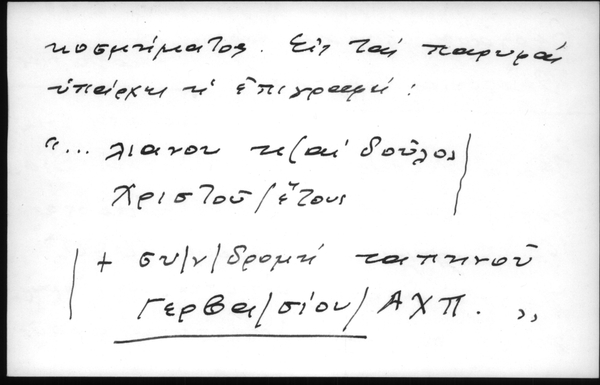 κοσμήματος. Εἰς τάς παρυφάς
ὑπάρχει κ' ἐπιγραφή :
"... λιανου κ(αί δοῦλος/
Χριστοῦ/ἔτους
/ + συ/ν/δρομή ταπηνοῦ
Γερβα/σίου/ ΑΧΠ. "